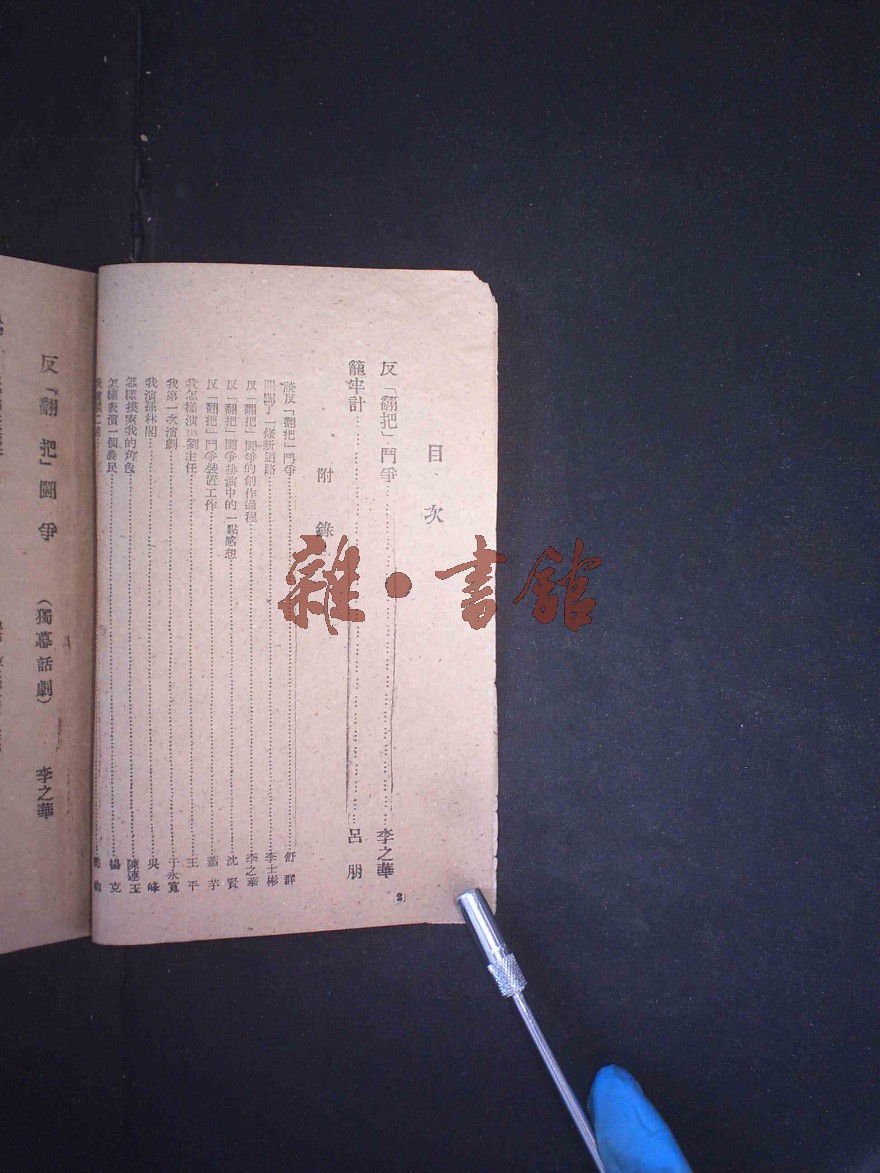 目次
反「翻把」鬥爭 李之華
籠牢計 呂朋
附錄
談反「翻把」鬥爭 舒群
開闢了一條新道路 李士彬
反「翻把」鬥爭的創作過程 李之華
反「翻把」鬥爭排演中的一點感想 沈賢
反「翻把」鬥爭裝置工作
我怎樣演劉主任 王平
我第一次演劇 于永寬
我演孫林閣 吳峰
怎樣摸索我的角色 陳連玉
怎樣表演一個農民 楊克
2
反「翻把」鬪爭(獨幕話劇) 李之華
雜·書館